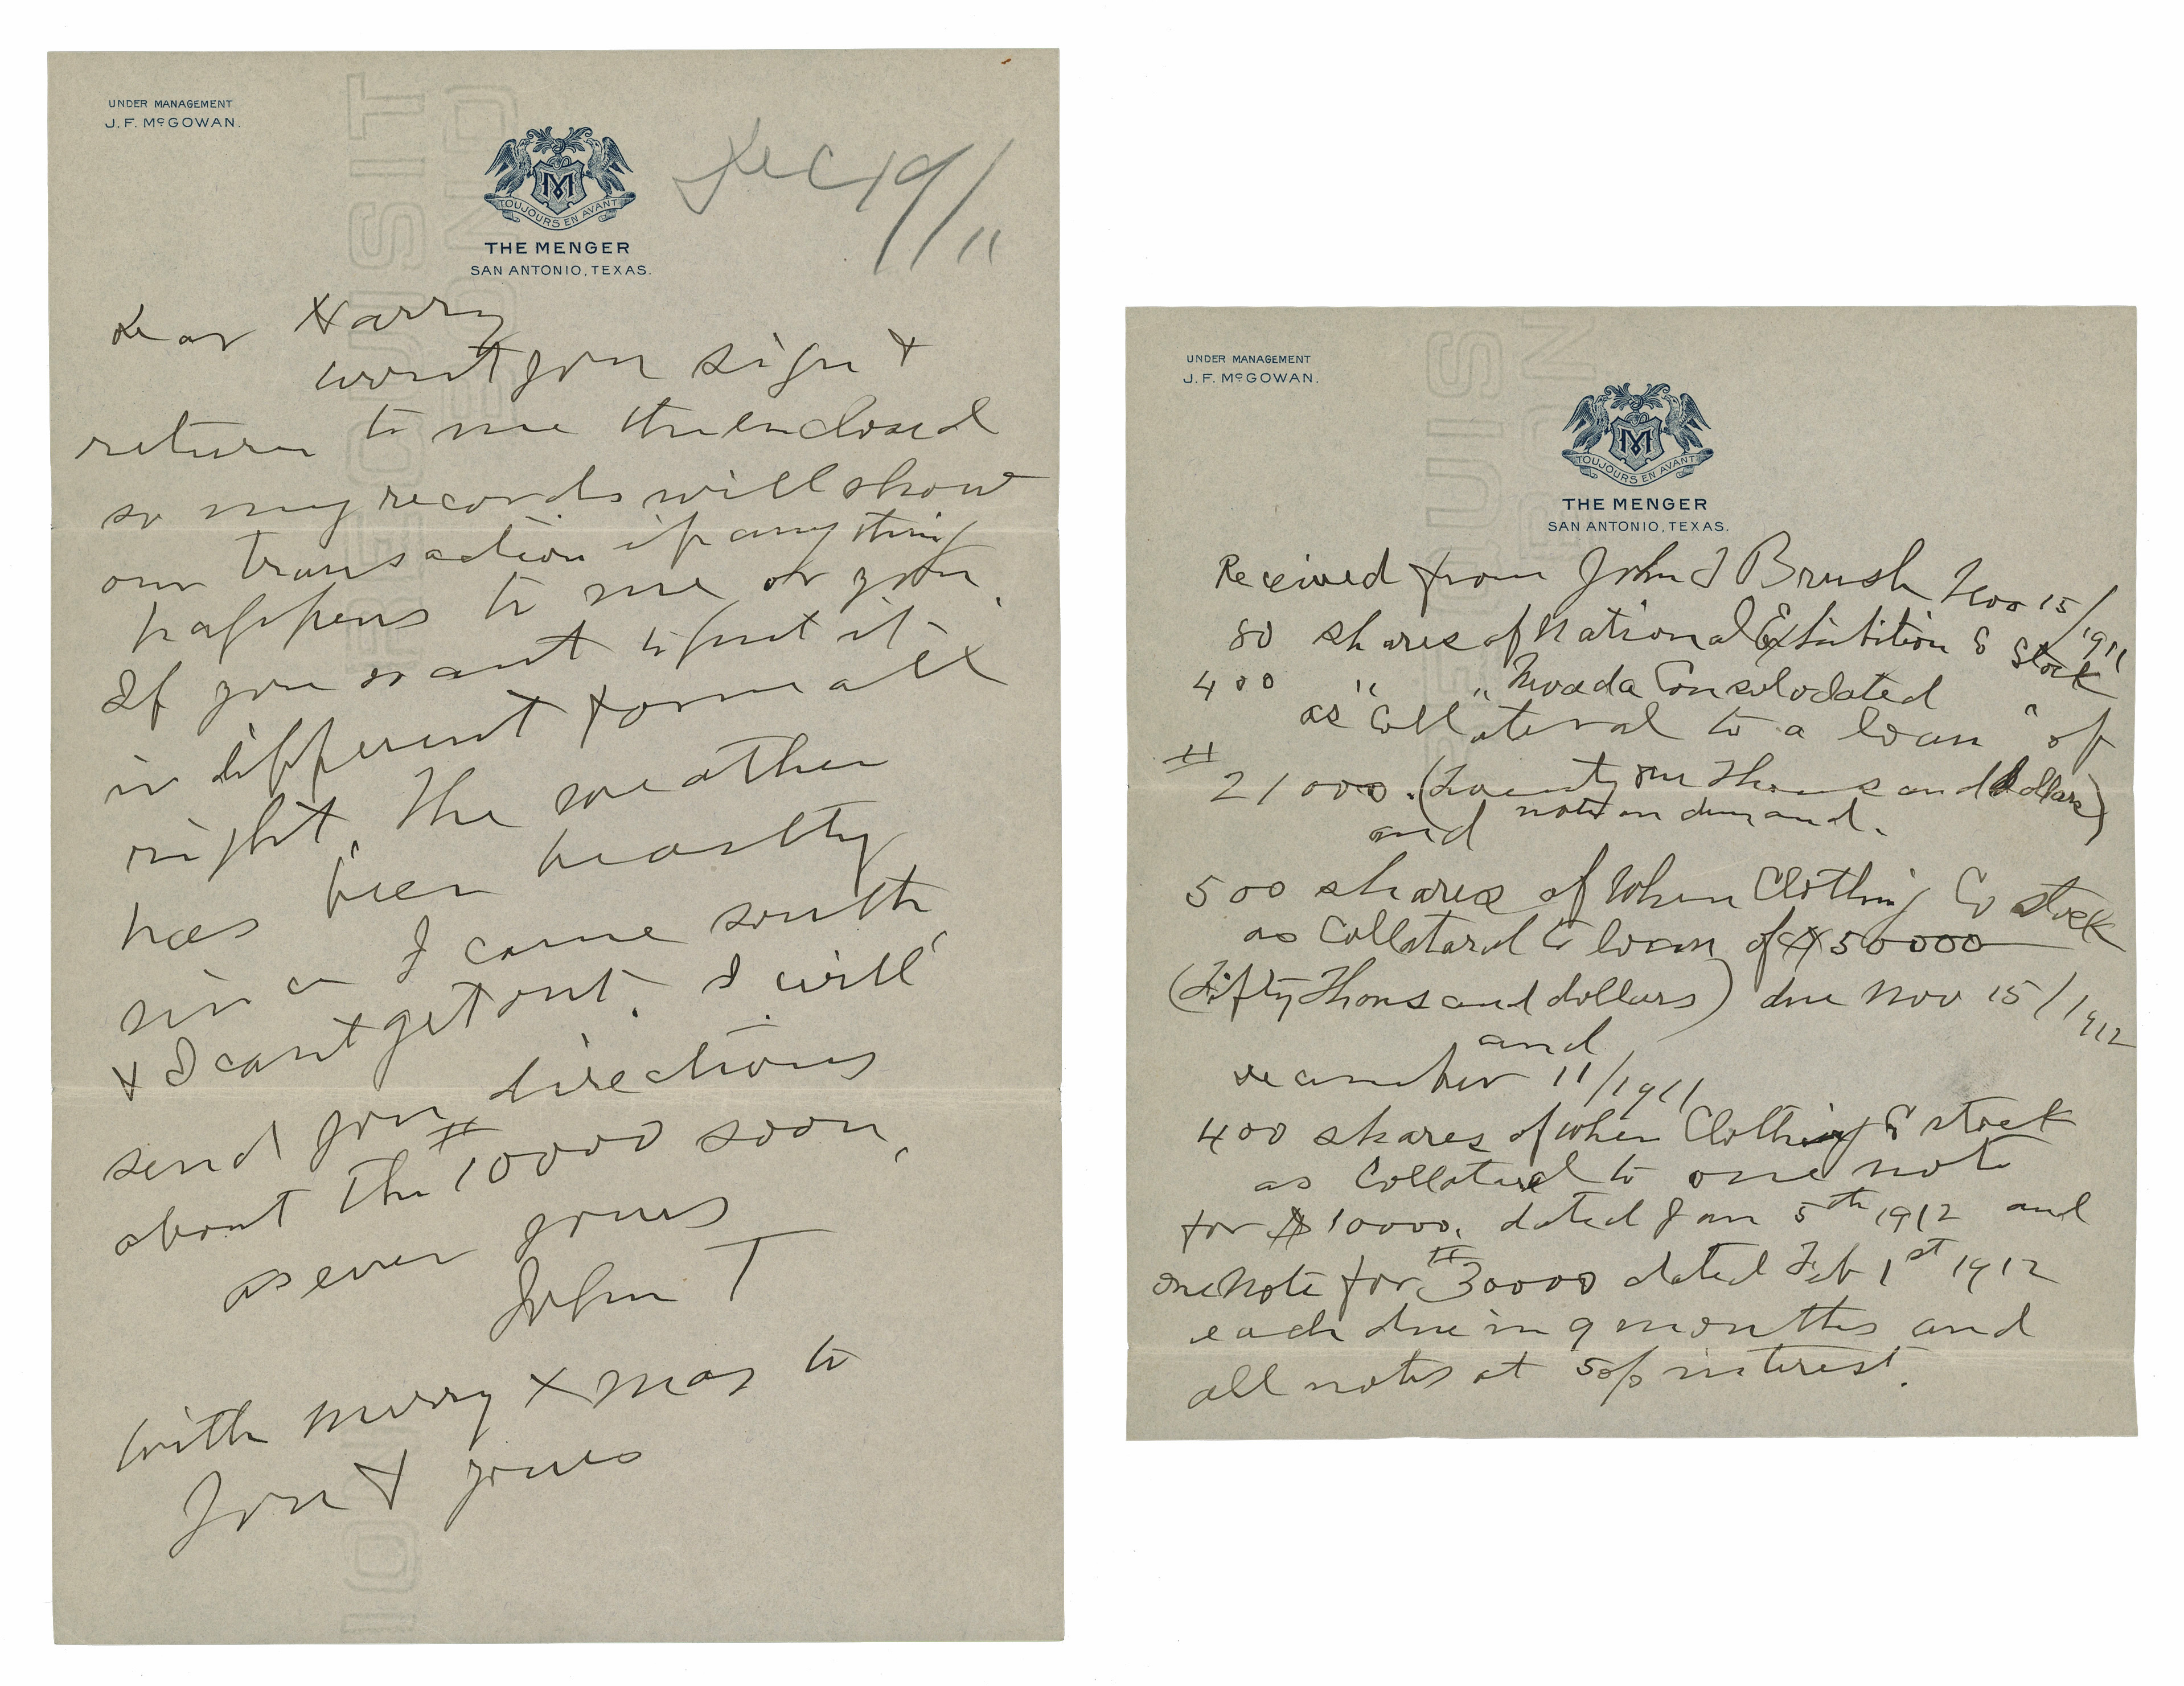 UNDER MANAGEMENT
J. F. McGOWAN.
TOUJOURS EN AVANT
THE MENGER
SAN ANTONIO, TEXAS.
Dec 19/11
Dear Harry
wont you sign &
return to me the enclosed
so my records will show
our transaction if anything
happens to me or you.
If you want to put it
in different form all
right. The weather
has been beastly
since I came south
& I cant get out. I will
send you directions
about the $10000 soon,
as ever yours
John T
with merry Xmas to
you & yours
UNDER MANAGEMENT
J. F. McGOWAN.
TOUJOURS EN AVANT
THE MENGER
SAN ANTONIO, TEXAS.
Received from John T Brush Nov 15/1911
80 shares of National Exhibition Co Stock
400 " " Nevada Consolodated "
as Collateral to a loan of
$21000. (Twenty one Thousand dollars)
and note on demand.
500 shares of When Clothing Co stock
as Collatarel to loan of $50000
(Fifty Thousand dollars) due Nov 15/1912
and
December 11/1911
400 shares of When Clothing Co stock
as Collateral to one note
for $10000. dated Jan 5th 1912 and
one Note for $30000 dated Feb 1st 1912
each due in 9 months and
all notes at 5% interest.